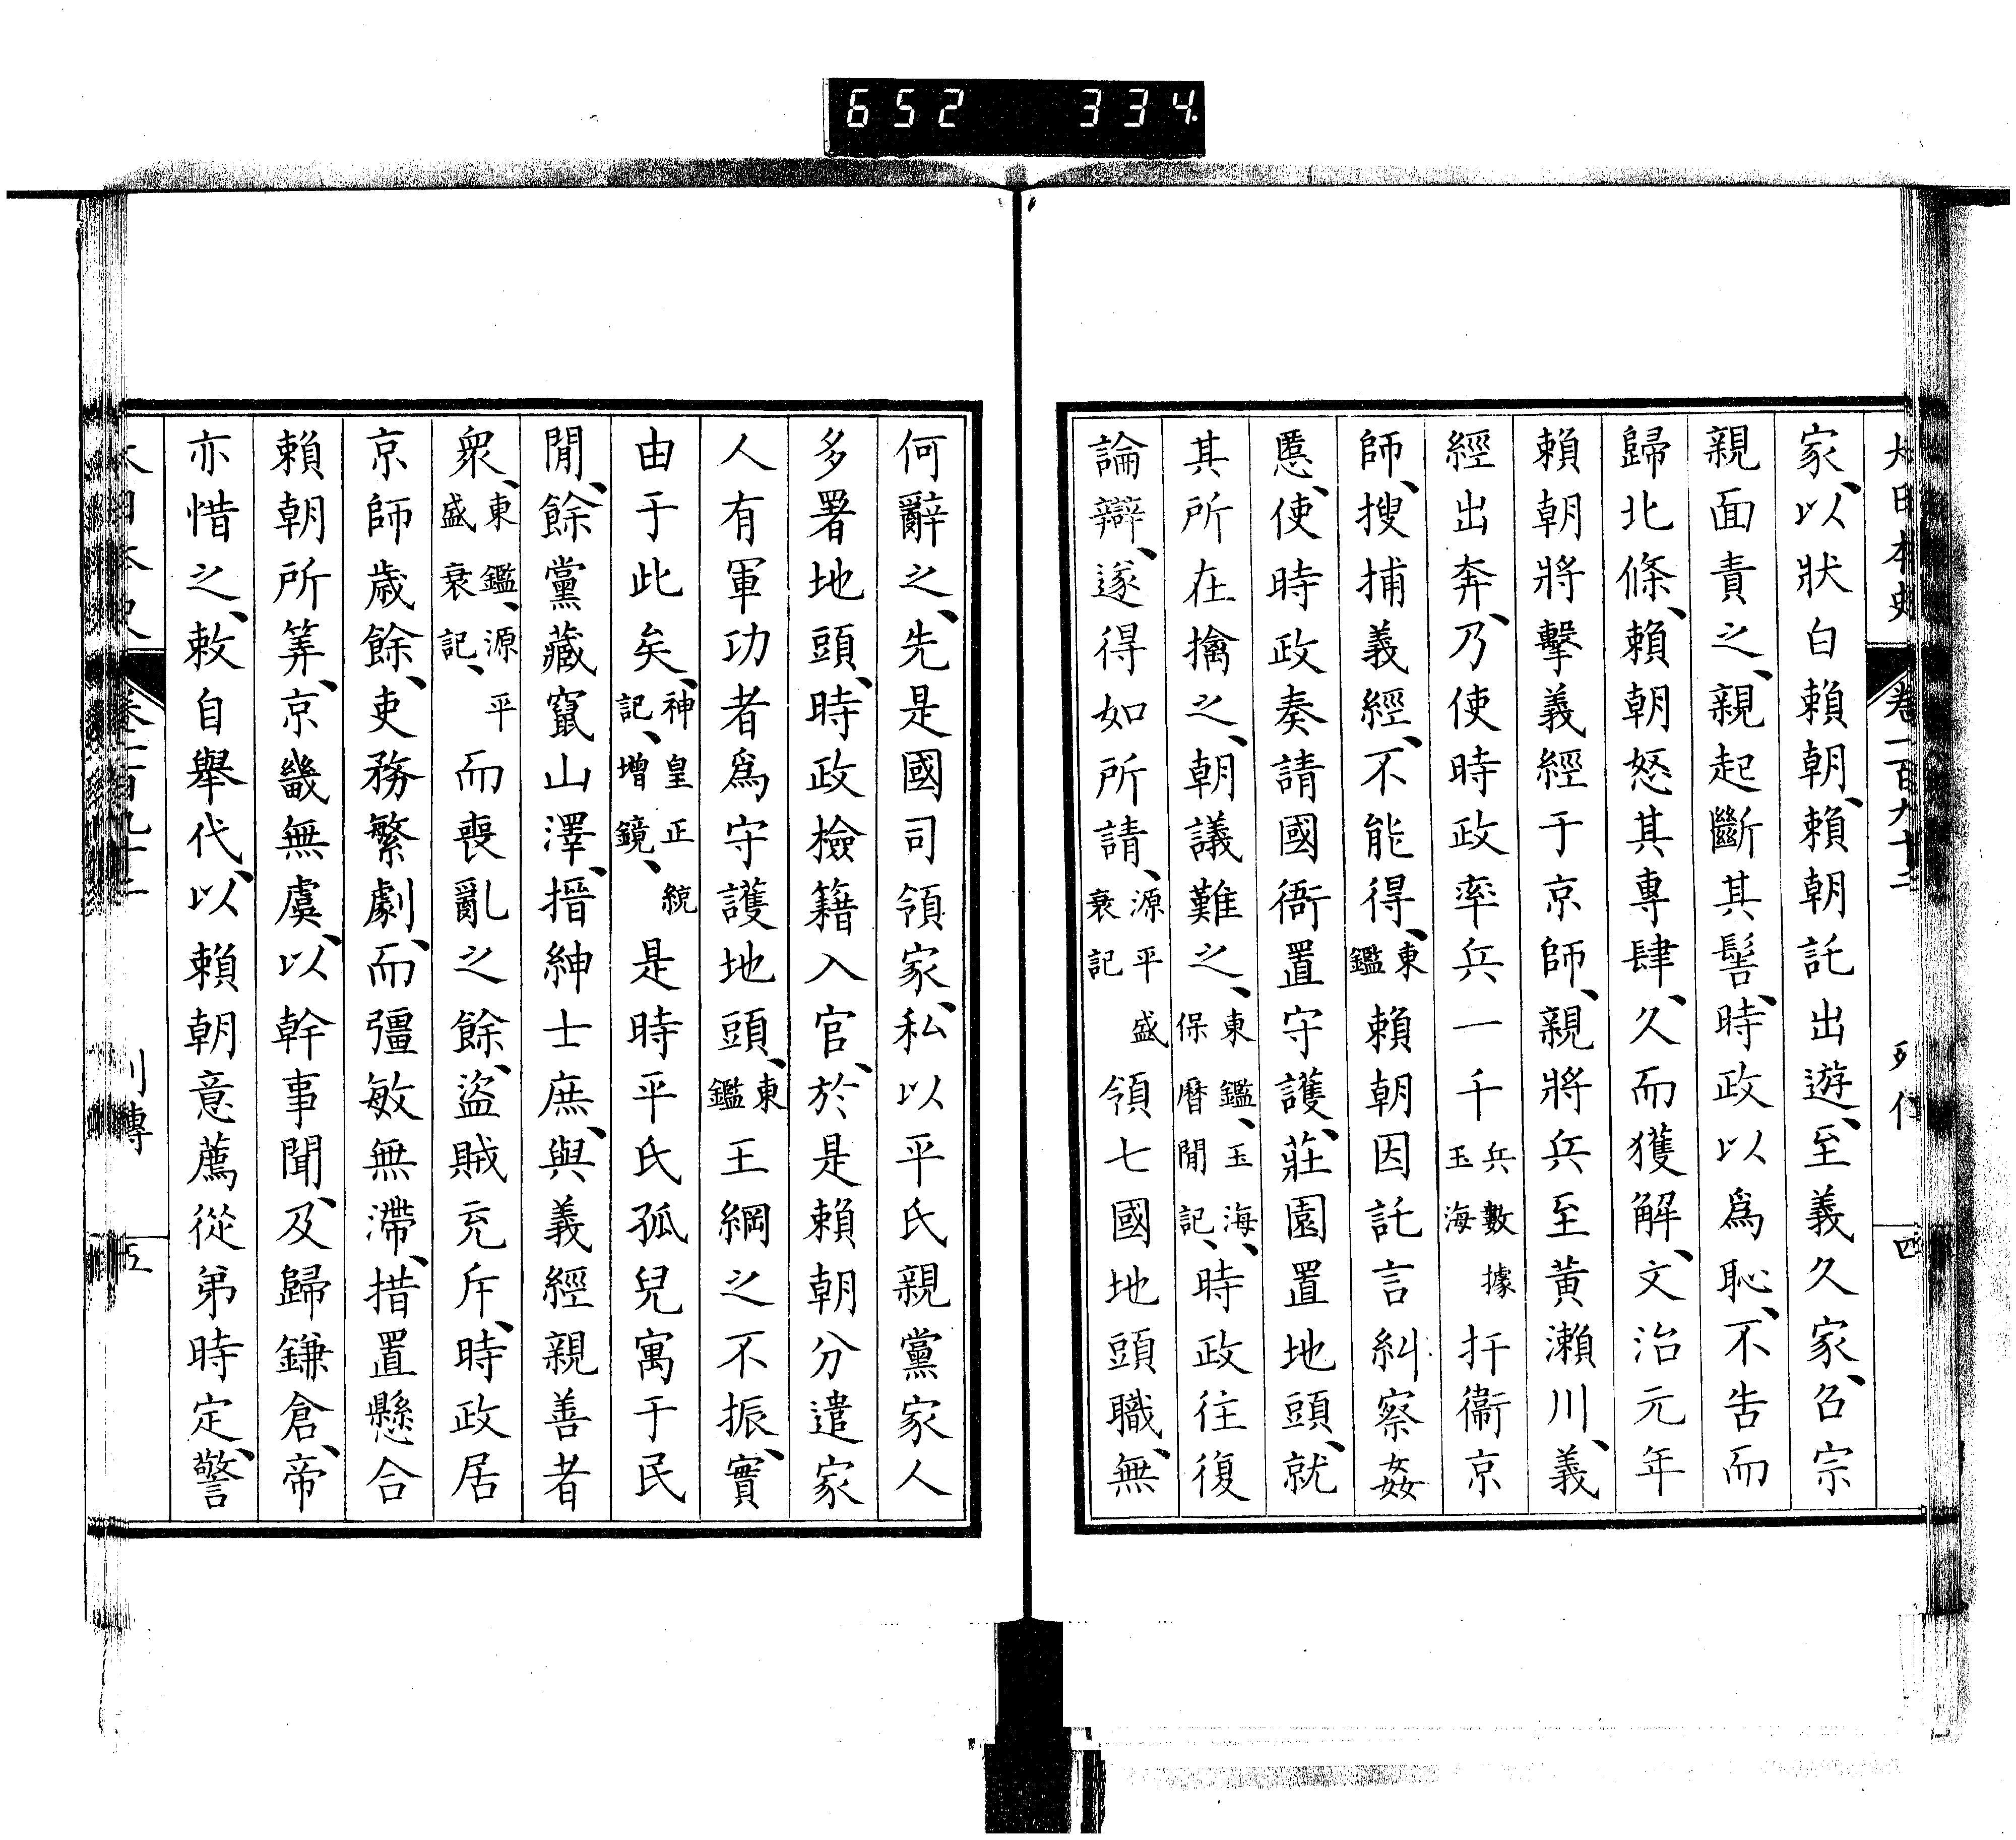 652 334
大日本史 卷一百九十二 列傳 四
家、以狀白賴朝、賴朝託出遊、至義久家、召宗
親面責之、親起斷其髻、時政以爲恥、不告而
歸北條、賴朝怒其專肆、久而獲解、文治元年
賴朝將擊義經于京師、親將兵至黃瀨川、義
經出奔、乃使時政率兵一千兵數據玉海扞衞京
師、搜捕義經、不能得、東鑑賴朝因託言糾察姦
慝、使時政奏請國衙置守護、莊園置地頭、就
其所在擒之、朝議難之、東鑑、玉海、保曆閒記、時政往復
論辯、遂得如所請、源平盛衰記領七國地頭職、無
何辭之、先是國司領家、私以平氏親黨家人
多署地頭、時政檢籍入官、於是賴朝分遣家
人有軍功者爲守護地頭、東鑑王綱之不振、實
由于此矣、神皇正統記、增鏡、是時平氏孤兒寓于民
閒、餘黨藏竄山澤、搢紳士庶、與義經親善者
衆、東鑑、源平盛衰記、而喪亂之餘、盜賊充斥、時政居
京師歲餘、吏務繁劇、而彊敏無滯、措置懸合
賴朝所筭、京畿無虞、以幹事聞、及歸鎌倉、帝
亦惜之、敕自舉代、以賴朝意薦從弟時定、警
大日本史 卷一百九十二 列傳 五